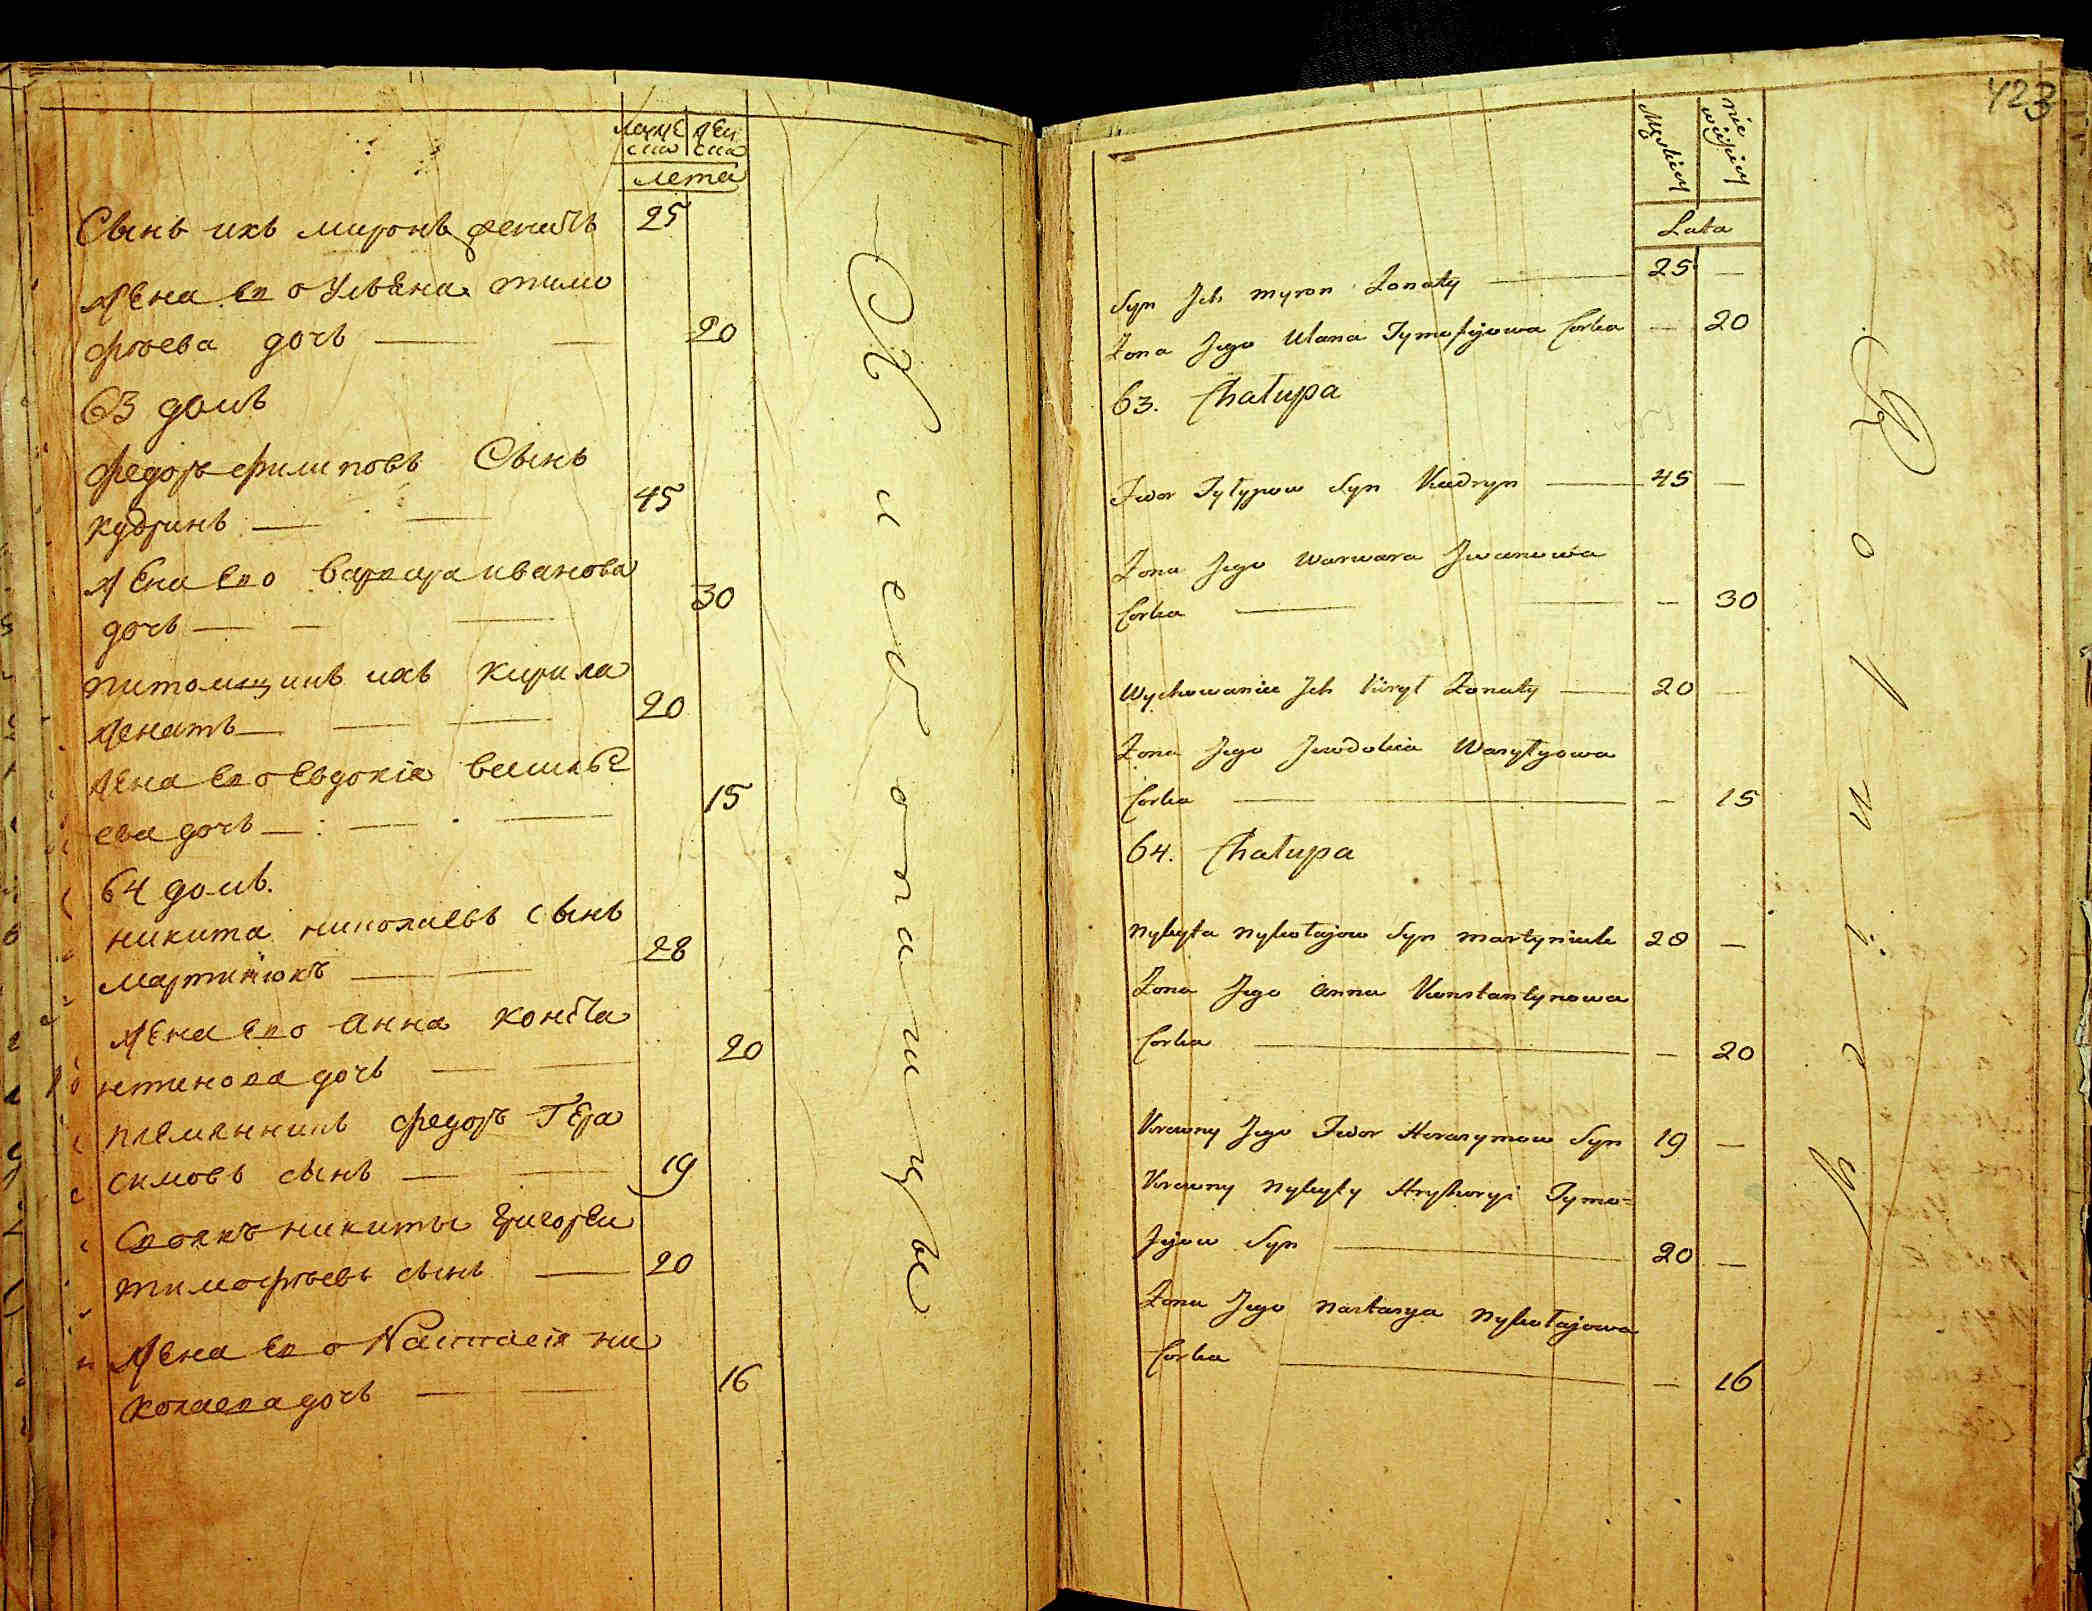 муже
ска
жен
ска
лета
Сынъ ихъ миронъ женатъ 25
жена ево Ульяна тимо
фѣева дочь — — 20
63 домъ
федоръ филиповъ Сынъ
кудринъ — — 45
жена ево варвара иванова
дочь — — — 30
питомщикъ ихъ кирила
женатъ — — — 20
жена ево Евдокія василь
ева дочь — — — 15
64 домъ.
никита николаевъ сынъ
мартинюкъ — — 28
жена ево анна конста
нтинова дочь — — 20
племянникъ федоръ Гера
симовъ сынъ — — 19
Своякъ никиты григорей
тимофѣевъ сынъ — 20
жена ево Настасія ни
колаева дочь — — 16
423
Męskiey
nie
wieściey
Lata
Syn Jch Myron Żonaty — 25 —
Żona Jego Ulana Tymofijowa Corka — 20
63. Chałupa
Fedor Fyłypow Syn Kudryn — 45 —
Żona Jego Warwara Jwanowa
Corka — — — 30
Wychowaniec Jch Kirył Żonaty — 20 —
Żona Jego Jewdokia Wasylyowa
Corka — — — 15
64. Chałupa
Nykyta Nykołajow Syn Martyniuk 28 —
Żona Jego Anna Konstantynowa
Corka — — 20
Krewny Jego Fedor Herasymow Syn 19 —
Krewny Nykyty Hryhoryi Tymo=
fijow Syn — 20 —
Żona Jego Nastasya Nykołajowa
Corka — — 16